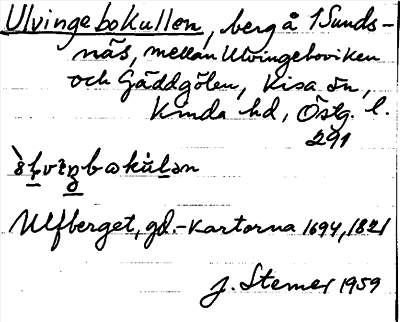 Ulvingebokullen, berg å 1 Sunds-
näs, mellan Ulvingeboviken
och Gäddgölen, Kisa sn,
Kinda hd, Östg. l.
291
Ulfberget, gd.-kartorna 1694, 1821
J. Stemer 1959